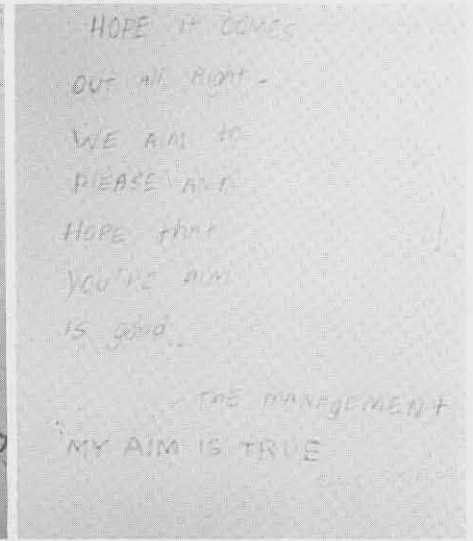 HOPE it COMES
OUt All Right -
WE AIM to
PlEASE AND
HOPE thAt
YOU'RE AIM
IS good
THE MANAgEMENt
MY AIM IS TRUE